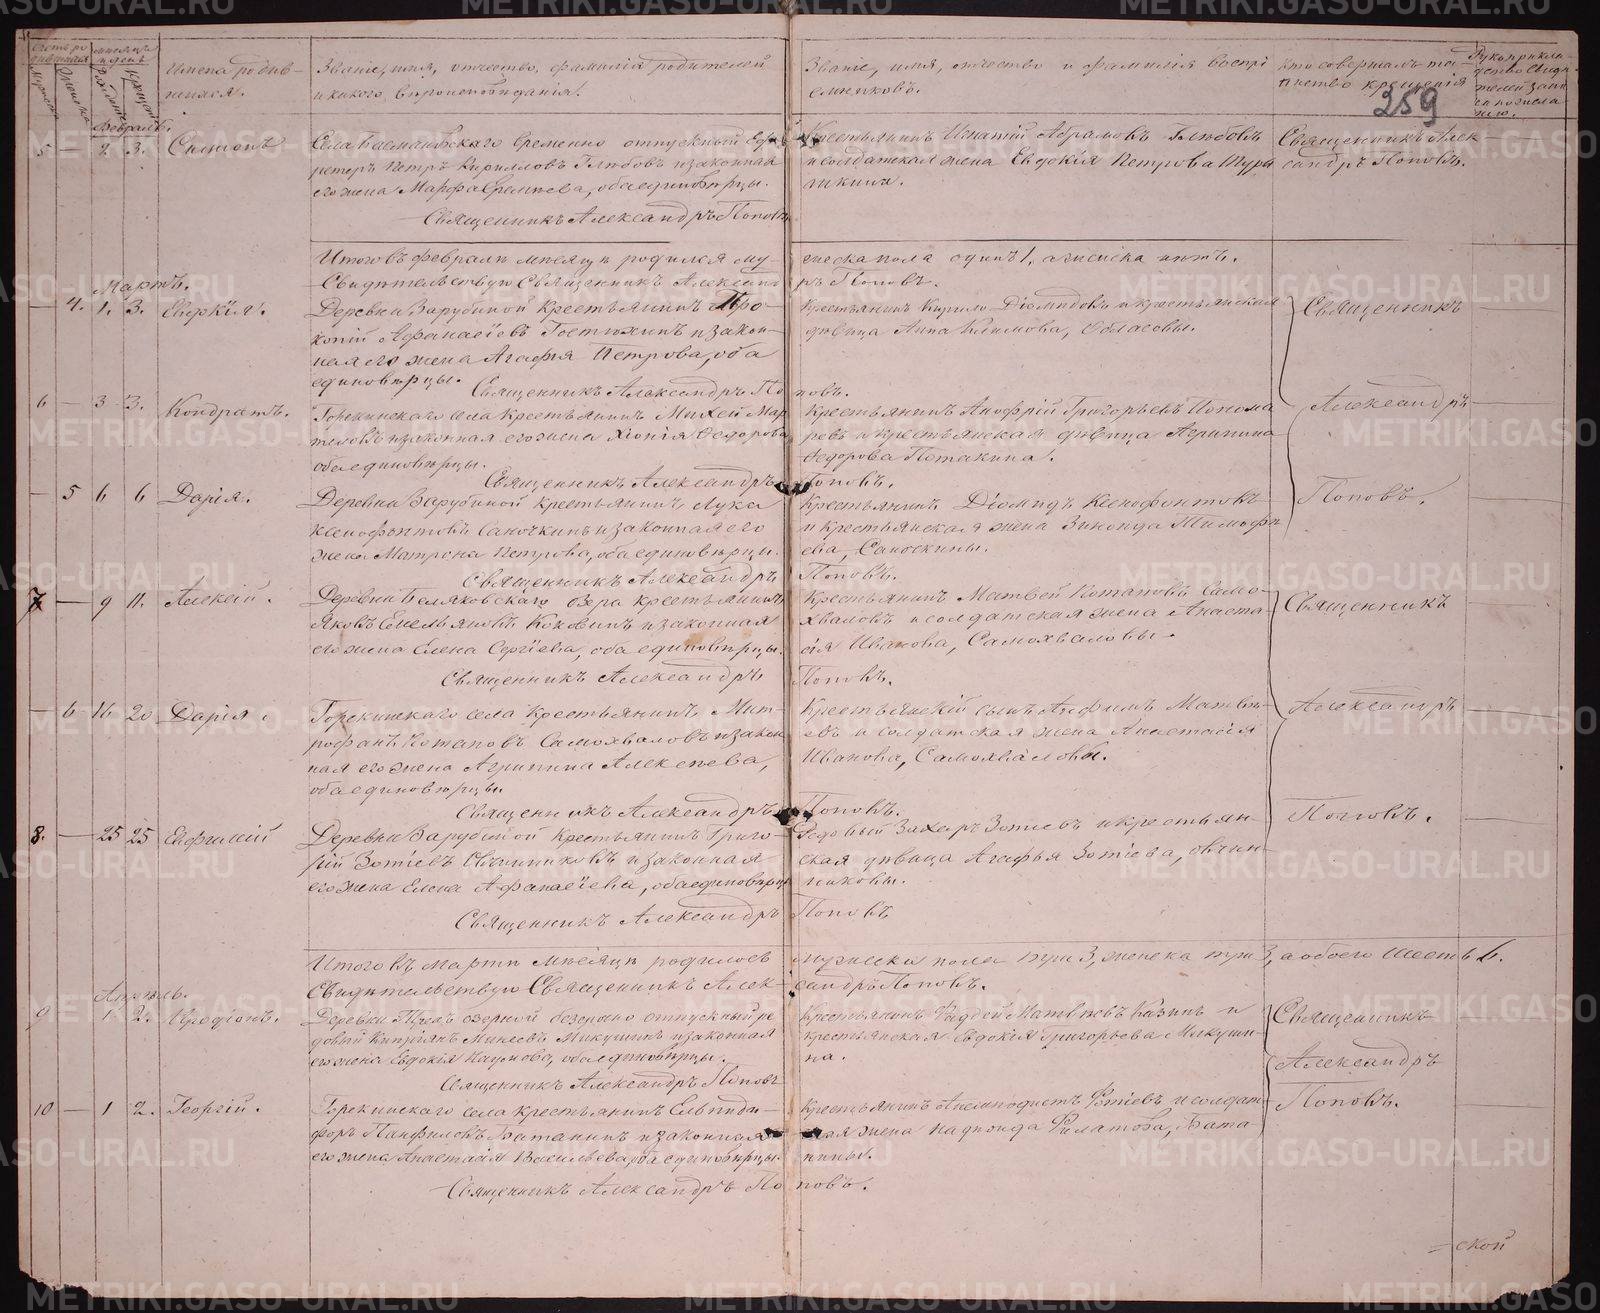 Счетъ ро
дившихся
Мужеска
Женска
Мѣсяцъ
и день
Рожденія
Крещенія
Имена родив-
шихся.
Званіе, имя, отчество, фамилія родителей
и какого вѣроисповѣданія.
Званіе, имя, отчество и фамилія воспрі
емниковъ.
Кто совершалъ таи-
инство крещенія
Рукоприкла-
дство свидѣ-
телей запи
си по жела-
нію.
259
Февраль.
5 — 2 3. Симеонъ
временно отпускный
Петръ Кирилловъ Глѣбовъ и законная
его жена Марфа Еремѣева, оба единовѣрцы.
Священникъ Александръ Поповъ
Крестьянинъ Игнатій Абрамовъ Глѣбовъ
и солдатская жена Евдокія Петрова
Священникъ Алек-
сандръ Поповъ.
Итого въ февралѣ мѣсяцѣ родился му-
жеска пола одинъ 1, а женска нѣтъ.
Свидѣтельствую Священникъ Александ
ръ Поповъ.
Мартъ.
— 4. 1. 3. Евдокія.
Деревни Зарубиной крестьянинъ Про-
копій Афанасіевъ Гостюхинъ и закон-
ная его жена Агафья Петрова, оба
единовѣрцы.
Священникъ Александръ По
повъ.
Крестьянинъ Кирило Діомидовъ и крестьянская
дѣвица Анна Климова,
Священникъ
Александръ
Поповъ.
6 — 3 3. Кондратъ.
Горскинскаго села крестьянинъ Михей Мар
теловъ и законная его жена Хіонія Ѳедорова
оба единовѣрцы.
Священникъ Александръ
Поповъ.
Крестьянинъ Анофрій Григорьевъ Понома
ревъ и крестьянская дѣвица Агрипина
Ѳедорова Потакина.
— 5 6 6 Дарія.
Деревни Зарубиной крестьянинъ Лука
Ксенофонтовъ Саночкинъ и законная его
жена Матрона Петрова, оба единовѣрцы.
Священникъ Александръ
Поповъ.
Крестьянинъ Діомидъ Ксенофонтовъ
и крестьянская жена Зиновида Тимофѣ
ева, Саночкины.
7 — 9 11. Алексій.
Деревни Беляковскаго озера крестьянинъ
Яковъ Емельяновъ Коковинъ и законная
его жена Елена Сергіева, оба единовѣрцы.
Священникъ Александръ
Поповъ.
Крестьянинъ Матвей Потаповъ Само-
хваловъ и солдатская жена Анаста-
сія Иванова, Самохваловы.
Священникъ
Александръ
Поповъ.
— 6 16 20 Дарія.
Горскинскаго села крестьянинъ Мит-
рофанъ Потаповъ Самохваловъ и закон
ная его жена Агрипина Алексѣева,
оба единовѣрцы.
Священникъ Александръ
Поповъ.
Крестьянскій сынъ Анфимъ Матвѣ-
евъ и солдатская жена Анастасія
Иванова, Самохваловы.
8. — 25 25 Евфгасій
Деревни Зарубиной крестьянинъ Григо-
рій Зотіевъ Овчинниковъ и законная
его жена Елена Афанасіева, оба единовѣрцы
Священникъ Александръ
Поповъ
Рядовый Захаръ Зотіевъ и крестьян-
ская дѣвица Агафья Зотіева, Овчин-
никовы.
Итого въ мартѣ мѣсяцѣ родилось
мужеска пола три 3, женска три 3, а обоего шесть 6.
Свидѣтельствую Священникъ Алек-
сандръ Поповъ.
Апрѣль.
9 — 1 2. Иродіонъ.
Деревни Предъ озерной безсрочно отпускный ря
довый Кипріянъ Минеевъ Микушинъ и законная
его жена Евдокія Наумова, оба единовѣрцы.
Священникъ Александръ Поповъ
Крестьянинъ Фаддей Матвѣевъ Казинъ и
крестьянская Евдокія Григорьева Микуши
на.
Священникъ
Александръ
Поповъ.
10 — 1 2. Георгій.
Горскинскаго села крестьянинъ Елпиди-
форъ Панфиловъ Батанинъ и законная
его жена Анастасія Васильева, оба единовѣрцы.
Священникъ Александръ По
повъ.
Крестьянинъ Анемподистъ Фотіевъ и солдат-
ская жена Надеонида Филатова, Бата-
нины.
= ской
METRIKI.GASO-URAL.RU